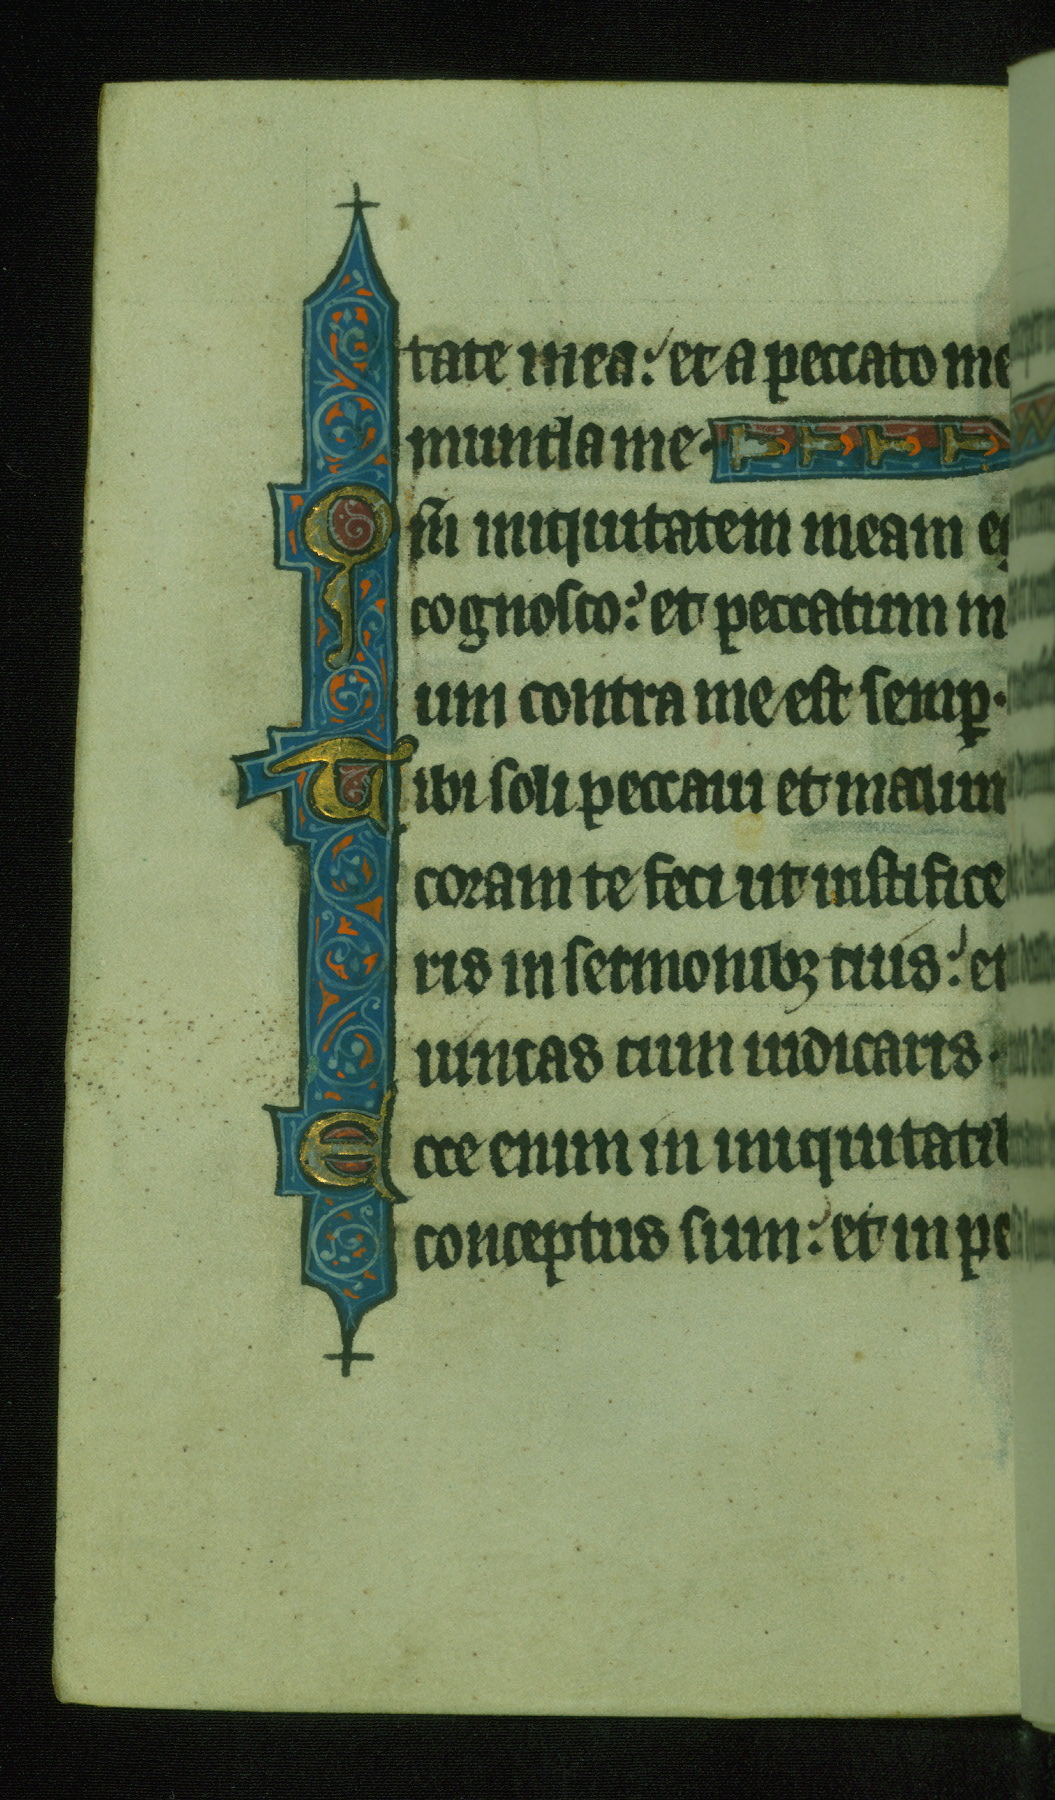 tate mea: et a peccato me
munda me.
Qm̄ iniquitatem meam eg
cognosco: et peccatum m
um contra me est semp̲.
Tibi soli peccaui et malum
coram te feci ut iustifice
ris in sermonibꝫ tuis: et
uincas cum iudicaris.
Ecce enim in iniquitatib
conceptus sum: et in pe